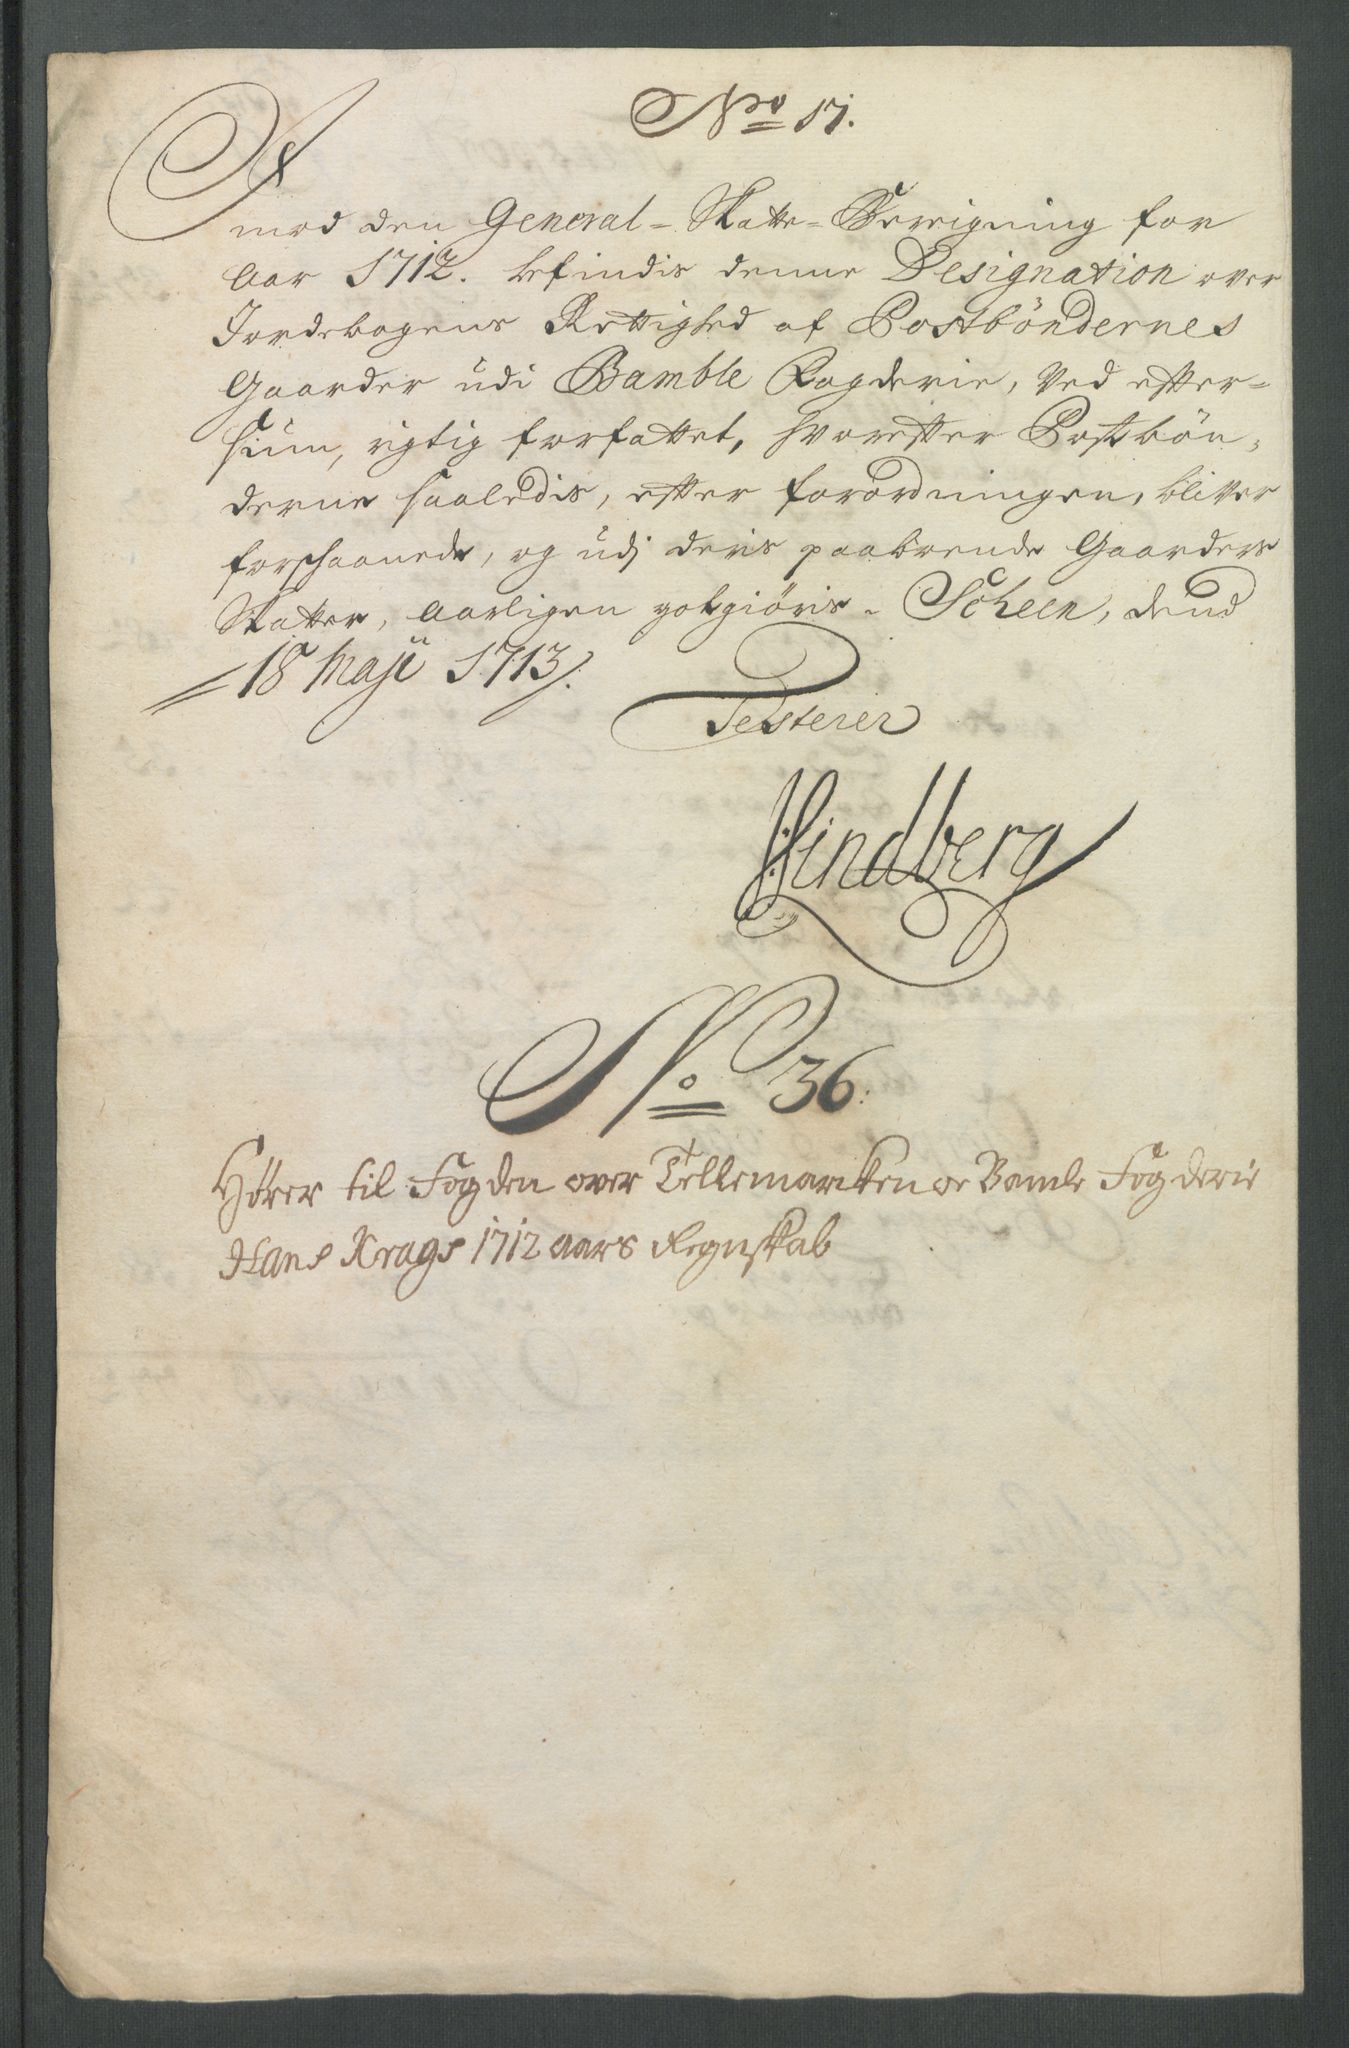 Nro 17.
Imod den General-Skatte-Beregning for
Aar 1712. befindis denne Designation over
Jordebogens Rettighed af Postböndernes
Gaarder udi Bamble Fogderie, Ved efter-
siun, rigtig forfattet, hvorefter Postbön-
derne saaledis, efter forordningen, bliver
forschaanede, og udj deris paaboende Gaarders
Skatter, Aarligen godgiöris. Scheen, dend
18 Maji 1713.
Testerer
HLindberg
No 36:
Hører til Fogden over Tellemarcken oc Bamle Fogderie
Hans Krags 1712 aars Regnskab